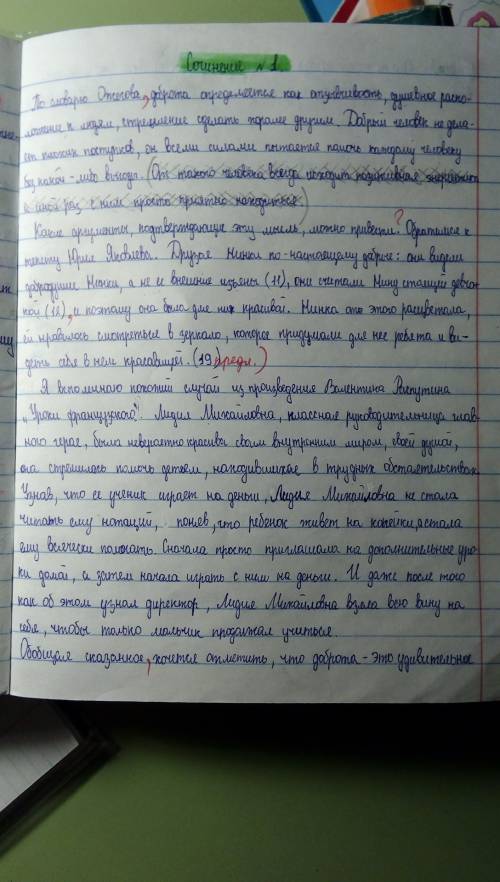 Сочинение №1.
По словарю Ожегова, доброта определяется как отзывчивость, душевное распо-
ложение к людям, стремление сделать хорошее другим. Добрый человек не дела-
ет плохих поступков, он всеми силами пытается помочь каждому человеку
без какой-либо выгоды. (От такого человека всегда исходит позитивная
и иной раз с ним просто приятно находиться.)
Какие аргументы, подтверждающие эту мысль, можно привести? Обратимся к
тексту Юрия Яковлева. Друзья Нинки по-настоящему добрые: они видели
добродушие Нинки, а не её внешние изъяны (11), они считали Нину стоящей девчон-
кой (12), и поэтому она была для них красивой. Нинка от этого расцветала,
ей нравилось смотреться в зеркало, которое придумали для нее ребята и ви-
деть себя в нем красавицей. (19 предл.)
Я вспоминаю похожий случай из произведения Валентина Распутина
„Уроки французского". Лидия Михайловна, классная руководительница глав-
ного героя, была невероятно красива своим внутренним миром, своей душой,
она стремилась помочь детям, находившимся в трудных обстоятельствах.
Узнав, что ее ученик играет на деньги, Лидия Михайловна не стала
читать ему нотаций, поняв, что ребенок живет на копейки, а стала
ему всячески помогать. Сначала просто приглашала на дополнительные уро-
ки домой, а затем начала играть с ним на деньги. И даже после того
как об этом узнал директор, Лидия Михайловна взяла всю вину на
себя, чтобы только мальчик продолжал учиться.
Обобщая сказанное, хочется отметить, что доброта - это удивительное